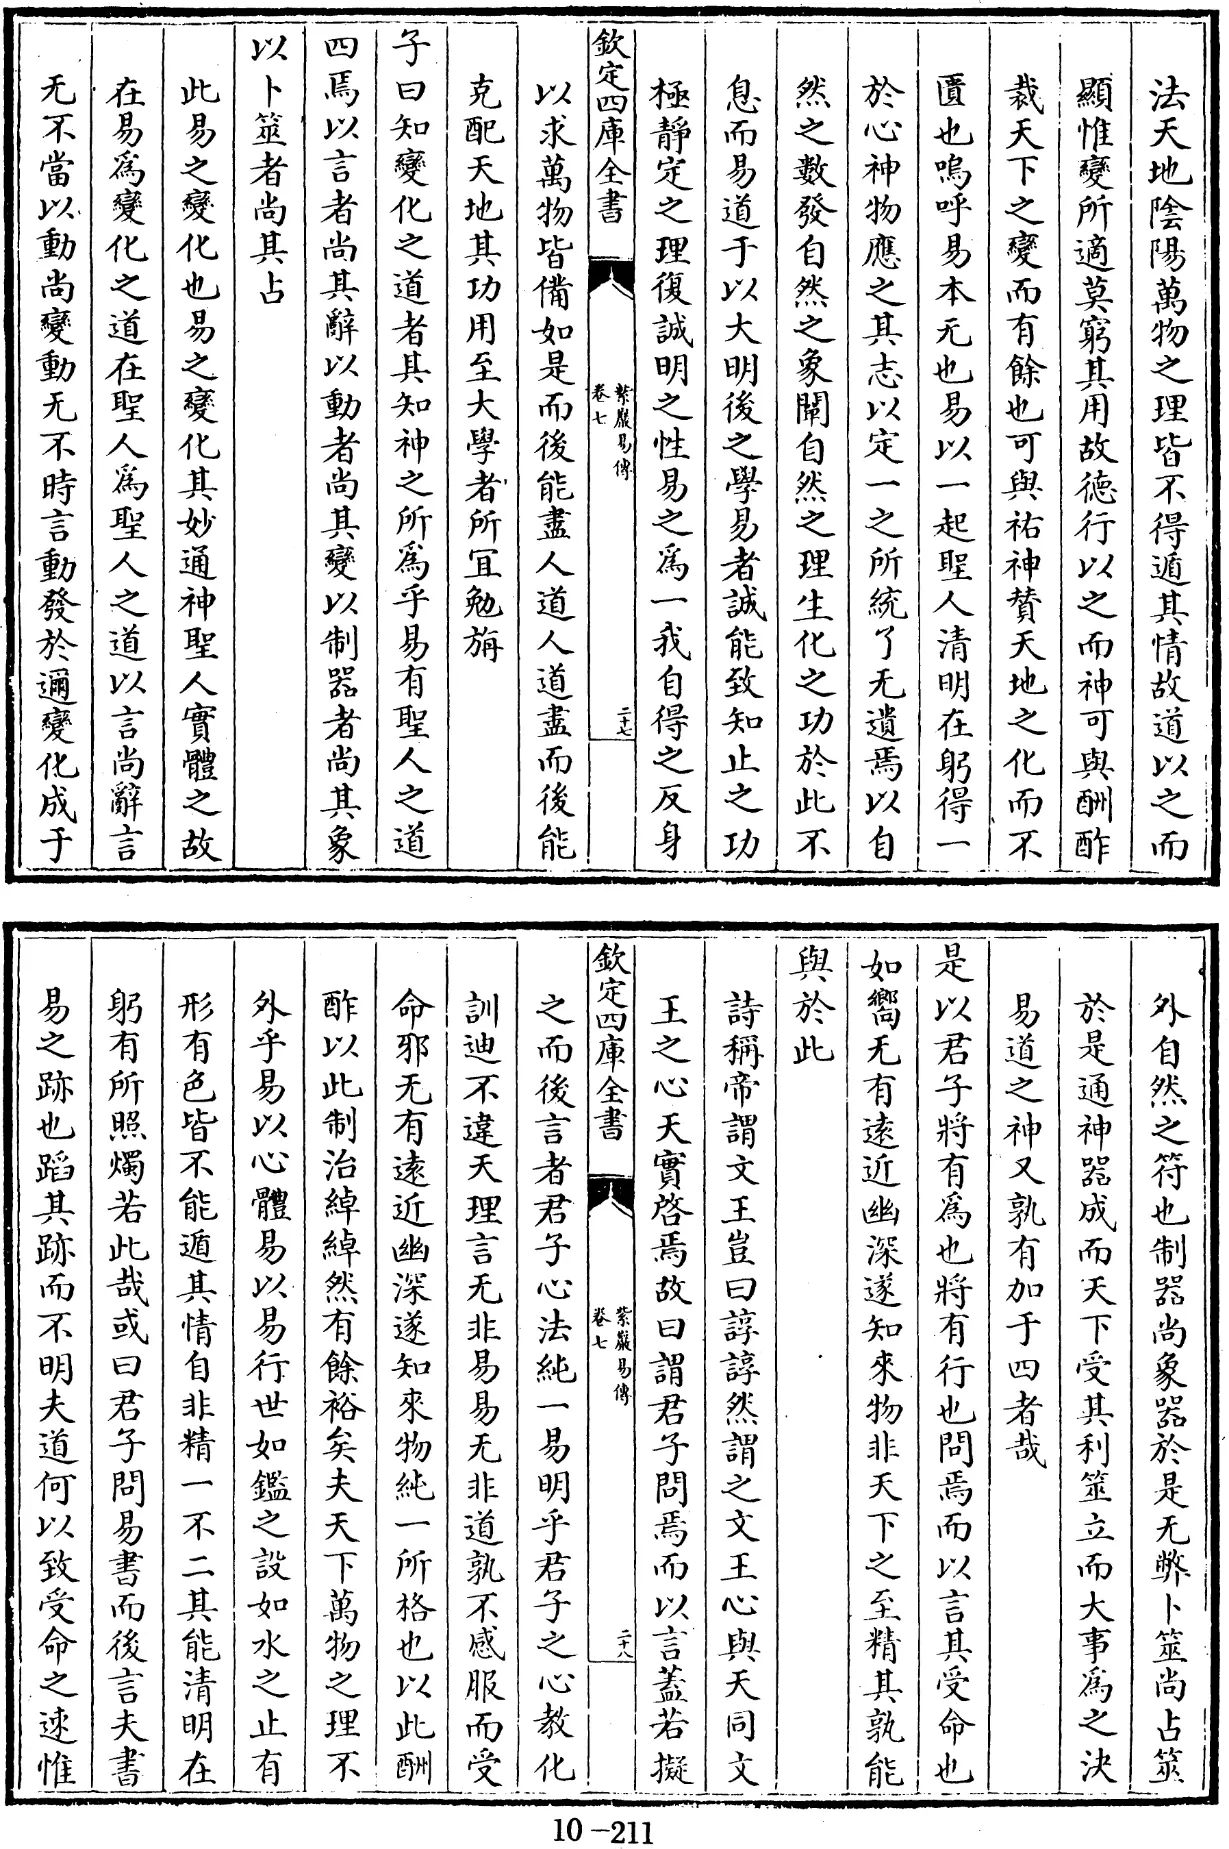 法天地陰陽萬物之理皆不得遁其情故道以之而
顯惟變所適莫窮其用故徳行以之而神可與酬酢
裁天下之變而有餘也可與祐神賛天地之化而不
匱也嗚呼易本无也易以一起聖人清明在躬得一
於心神物應之其志以定一之所統了无遺焉以自
然之數發自然之象闡自然之理生化之功於此不
息而易道于以大明後之學易者誠能致知止之功
極靜定之理復誠明之性易之為一我自得之反身
欽定四庫全書
紫巖易傳
卷七
二十七
以求萬物皆備如是而後能盡人道人道盡而後能
克配天地其功用至大學者所宜勉旃
子曰知變化之道者其知神之所為乎易有聖人之道
四焉以言者尚其辭以動者尚其變以制器者尚其象
以卜筮者尚其占
此易之變化也易之變化其妙通神聖人實體之故
在易為變化之道在聖人為聖人之道以言尚辭言
无不當以動尚變動无不時言動發於邇變化成于
外自然之符也制器尚象器於是无弊卜筮尚占筮
於是通神器成而天下受其利筮立而大事為之決
易道之神又孰有加于四者哉
是以君子將有為也將有行也問焉而以言其受命也
如嚮无有逺近幽深遂知來物非天下之至精其孰能
與於此
詩稱帝謂文王豈曰諄諄然謂之文王心與天同文
王之心天實啓焉故曰謂君子問焉而以言蓋若擬
欽定四庫全書
紫巖易傳
卷七
二十八
之而後言者君子心法純一易明乎君子之心教化
訓迪不違天理言无非易易无非道孰不感服而受
命邪无有逺近幽深遂知來物純一所格也以此酬
酢以此制治綽綽然有餘裕矣夫天下萬物之理不
外乎易以心體易以易行世如鑑之設如水之止有
形有色皆不能遁其情自非精一不二其能清明在
躬有所照燭若此哉或曰君子問易書而後言夫書
易之跡也蹈其跡而不明夫道何以致受命之速惟
10-211